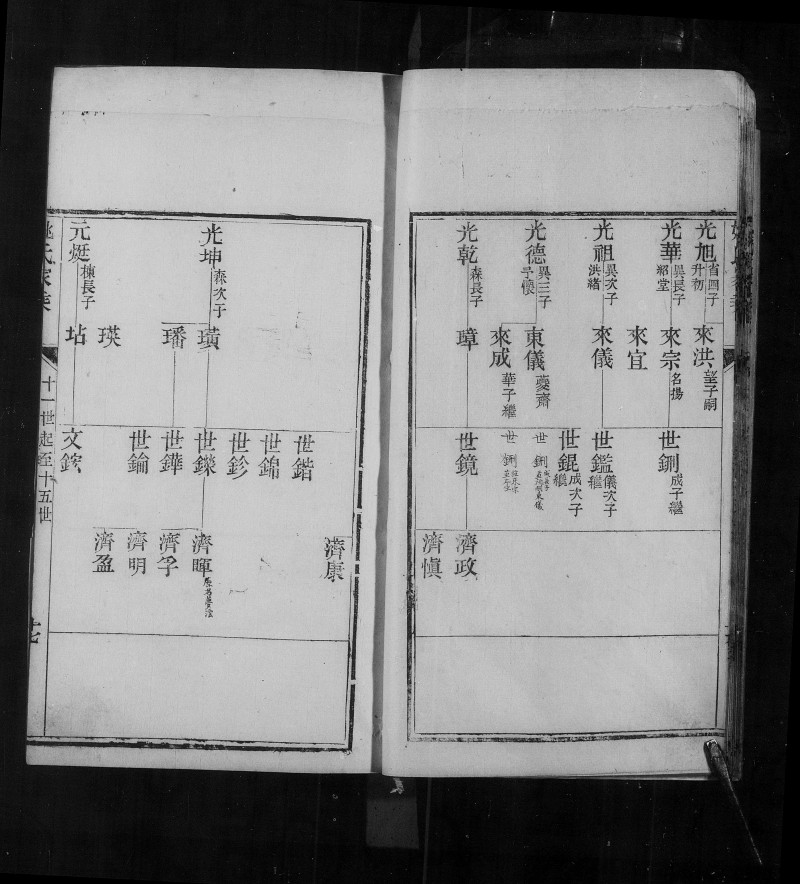 光旭 省四子 升初
光華 異長子 紹堂
光祖 異次子 洪緒
光德 異三子 予懷
光乾 森長子
來洪 望子嗣
來宗 名揚
來宜
來儀
東儀 夔齋
來成 華子繼
璋
世鉶 成子繼
世鑑 儀次子繼
世錕 成次子繼
世鉶
世鉶
世鏡
濟政
濟慎
光坤 森次子
元烶 棟長子
璜
璠
瑛
坫
世鍇
世錦
世鉁
世鑅
世鏵
世鑰
文鋐
濟康
濟暉
濟孚
濟明
濟盈
姚氏家乘
十一世起至十五世